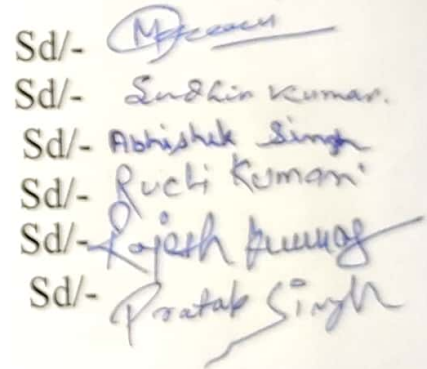 Sd/-
Sd/- Sudhir Kumar.
Sd/- Abhishek Singh
Sd/- Ruchi Kumari
Sd/- Rajesh Kumar
Sd/- Pratap Singh